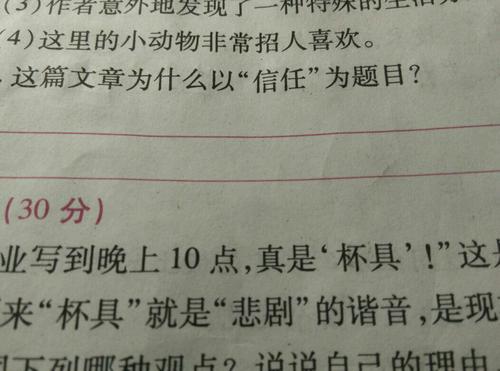 (3)作者意外地发现了一种特殊的生活方
(4)这里的小动物非常招人喜欢。
这篇文章为什么以“信任”为题目?
(30分)
业写到晚上10点,真是‘杯具’!”这是
来“杯具”就是“悲剧”的谐音,是现
下列哪种观点?说说自己的理由